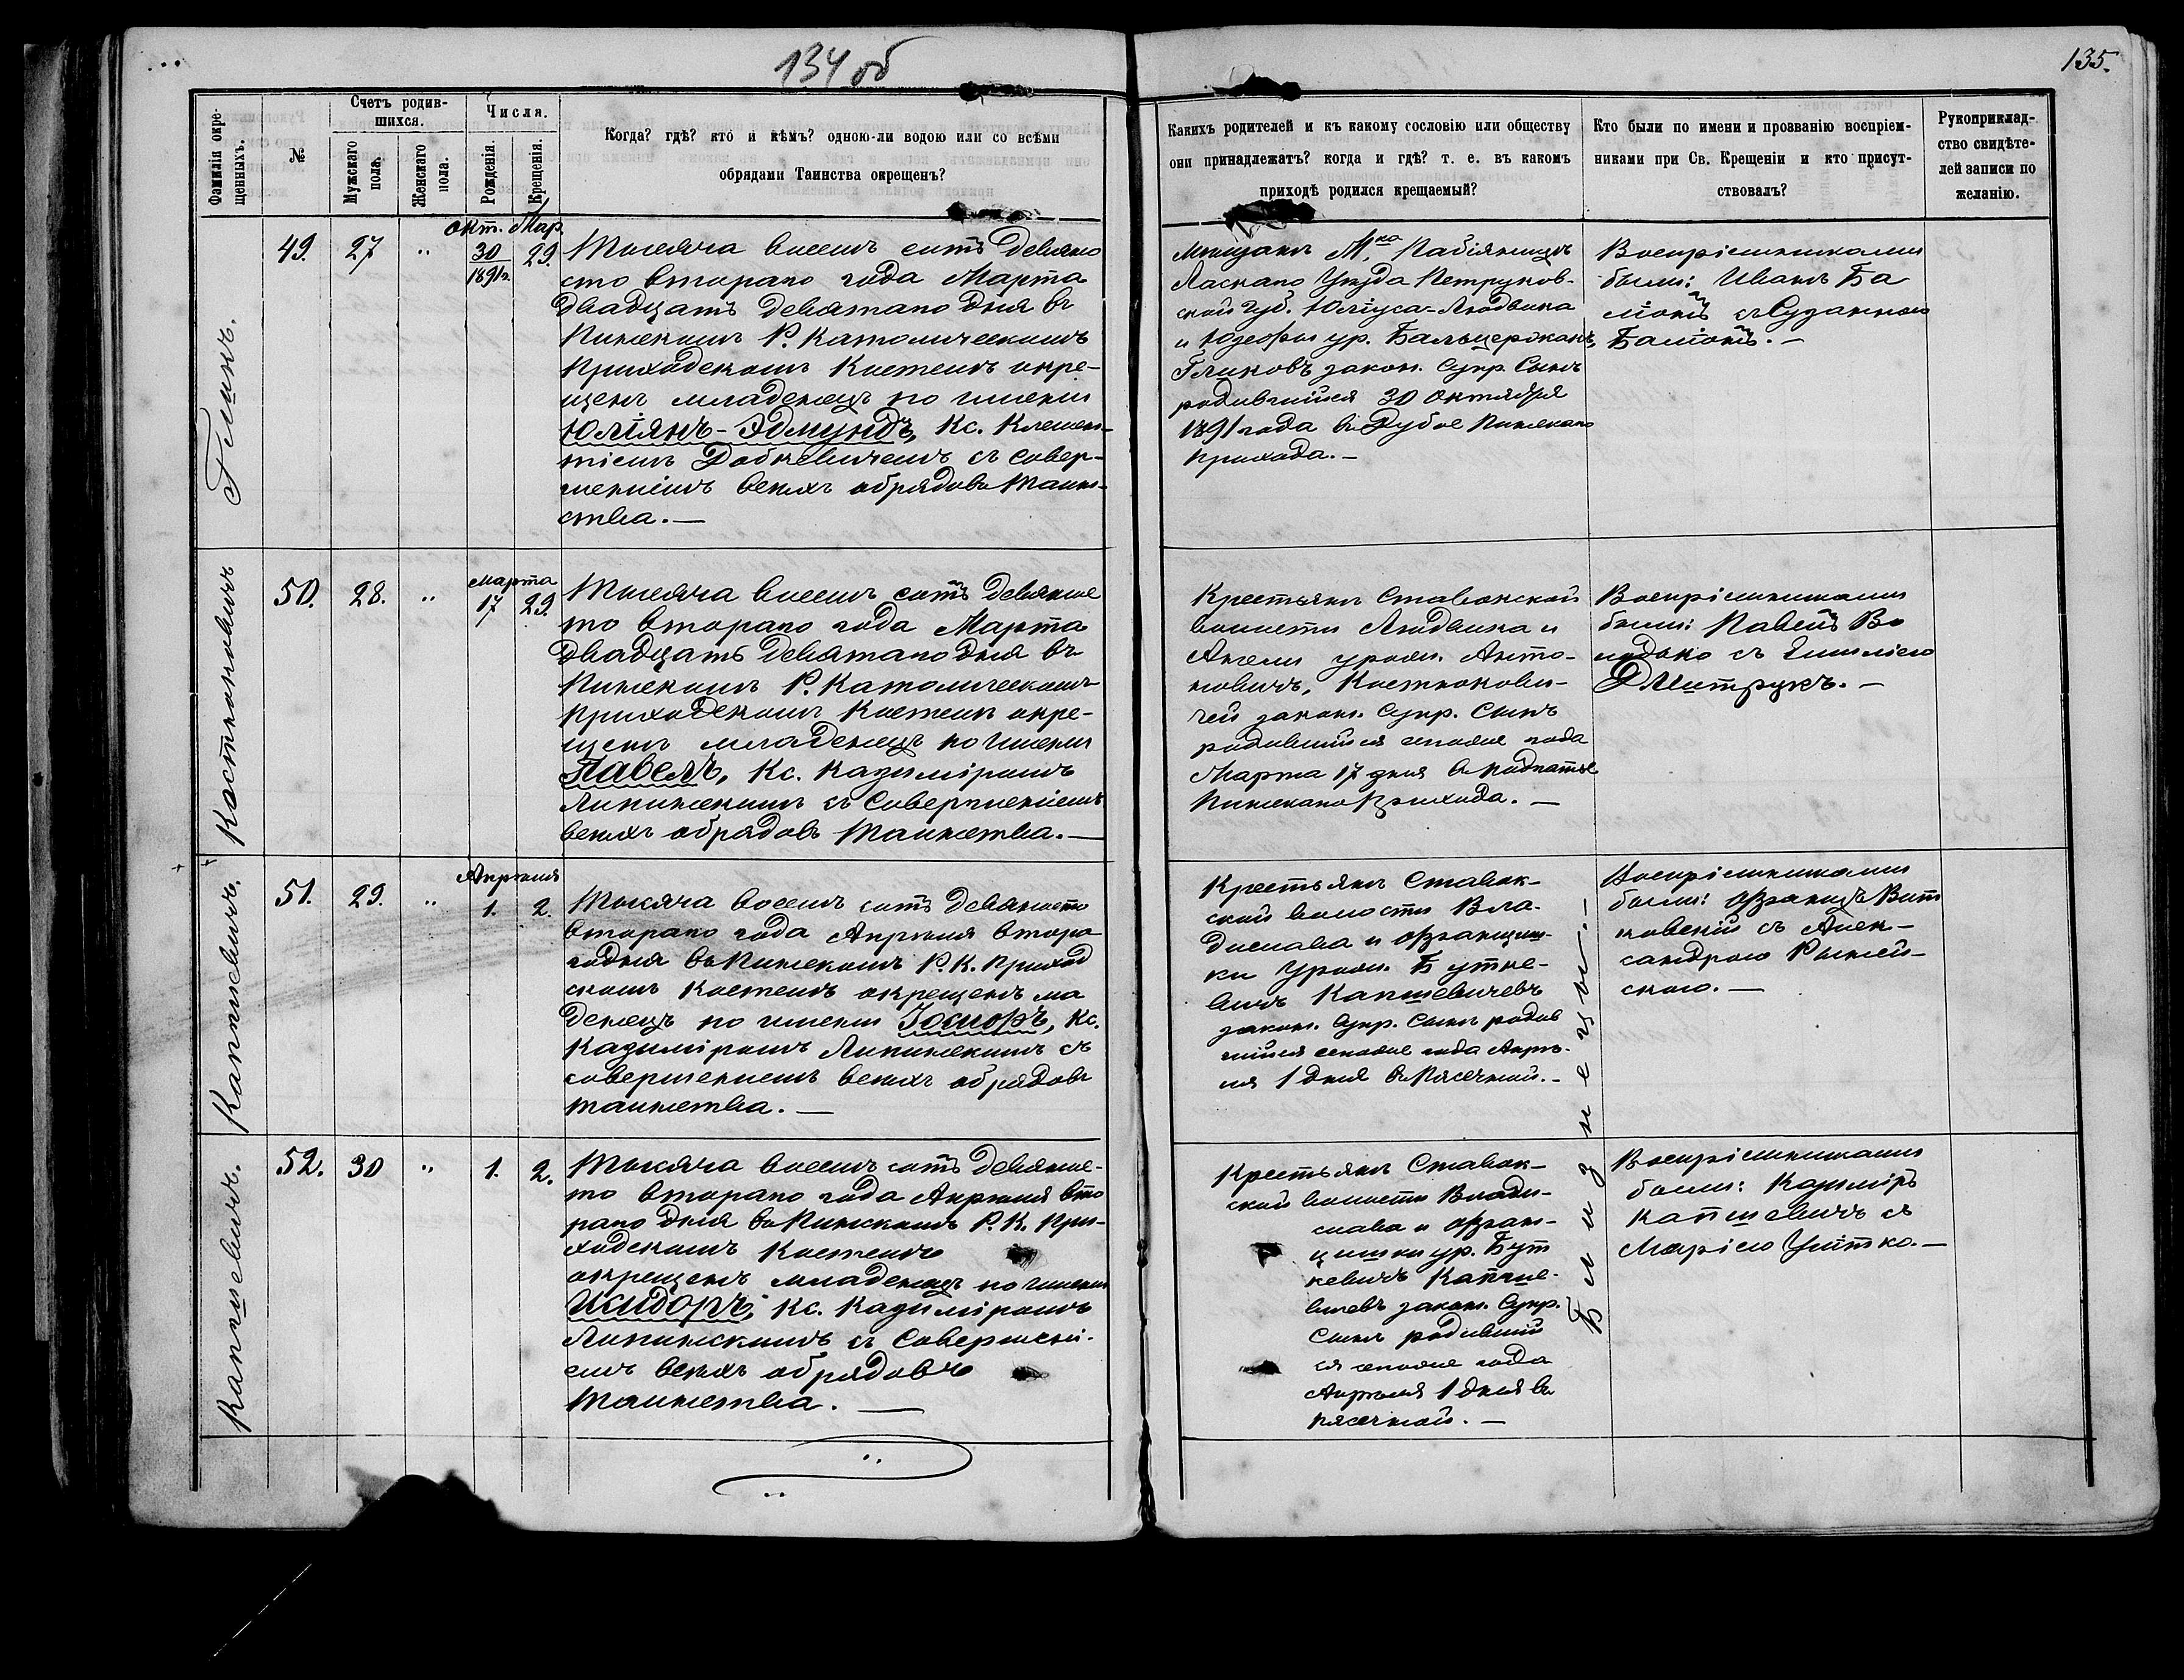 134 об
135.
Фамилія окре-
щенныхъ.
№
Счетъ родив-
шихся.
Мужскаго
пола.
Женскаго
пола.
Числа.
Рожденія.
Крещенія.
Когда? гдѣ? кто и кѣмъ? одною-ли водою или со всѣми
обрядами Таинства окрещенъ?
Какихъ родителей и къ какому сословію или обществу
они принадлежатъ? когда и гдѣ? т. е. въ какомъ
приходѣ родился крещаемый?
Кто были по имени и прозванію воспріем-
никами при Св. Крещеніи и кто присут-
ствовалъ?
Рукоприклад-
ство свидѣте-
лей записи по
желанію.
49.
27
"
окт. Мар.
30 29.
1891г.
Тысяча восемь сотъ девяно
сто втораго года Марта
двадцать девятаго дня въ
Пинскомъ Р. Католическомъ
приходскомъ костелѣ окре-
щенъ младенецъ по имени
Юліянъ-Эдмундъ, Кс. Клемен-
тіемъ Добкевичемъ съ совер-
шеніемъ всѣхъ обрядовъ Таин-
ства.—
Мѣщанъ М.ка Пабіяницъ
Ласкаго Уѣзда Петруков-
ской Губ. Юліуса-Людвика
и Юзефы ур. Бальцержакъ,
законн. Супр. Сынъ
родившійся 30 Октября
1891 года въ Дубое Пинскаго
прихода.—
Воспріемниками
были: Иванъ Ба
съ Сузанною
50.
28.
"
Марта
17 29.
Костюковичъ
Тысяча восемь сотъ девянос
то втораго года Марта
двадцать девятаго дня въ
Пинскомъ Р. Католическомъ
приходскомъ костелѣ окре-
щенъ младенецъ по имени
Павелъ, Кс. Казиміромъ
Липинскимъ съ совершеніемъ
всѣхъ обрядовъ Таинства.—
Крестьянъ Ставокской
волости Людвика и
Анели урожд. Анто-
новичъ, Костюкови-
чей законн. Супр. Сынъ
родившійся сего же года
Марта 17 дня въ
Пинскаго Прихода.—
Воспріемниками
были: Павелъ Во
лодько съ Эмиліею
Дмитрукъ.—
51.
29.
"
Апрѣля
1. 2.
Капшевичъ.
Тысяча восемь сотъ девяносто
втораго года Апрѣля второ
го дня въ Пинскомъ Р. К. приход
скомъ костелѣ окрещенъ мла
денецъ по имени Іосифъ, Кс.
Казиміромъ Липинскимъ съ
совершеніемъ всѣхъ обрядовъ
таинства.—
Крестьянъ Ставок-
ской волости Вла-
дислава и Францищ-
ки Урожд. Бутке-
вичъ Капшевичевъ
законн. Супр. Сынъ родив
шійся сего же года Апрѣ-
ля 1 дня въ Пясечной.—
Воспріемниками
были: Францъ Вит
ковскій съ Алек-
сандрою
скою.—
Близнецы.—
52.
30
"
1. 2.
Капшевичъ.
Тысяча восемь сотъ девянос-
то втораго года Апрѣля вто
раго дня въ Пинскомъ Р. К. при-
ходскомъ костелѣ
окрещенъ младенецъ по имени
Исидоръ, Кс. Казиміромъ
Липинскимъ съ совершені-
емъ всѣхъ обрядовъ
Таинства.—
Крестьянъ Ставок-
ской волости Влади-
слава и Фран-
цишки ур. Бут
кевичъ Капше-
вичевъ законн. Супр.
Сынъ родивший
ся сего же года
Апрѣля 1 дня въ
Пясечной.—
Воспріемниками
были: Казиміръ
Капшевичъ съ
Маріею